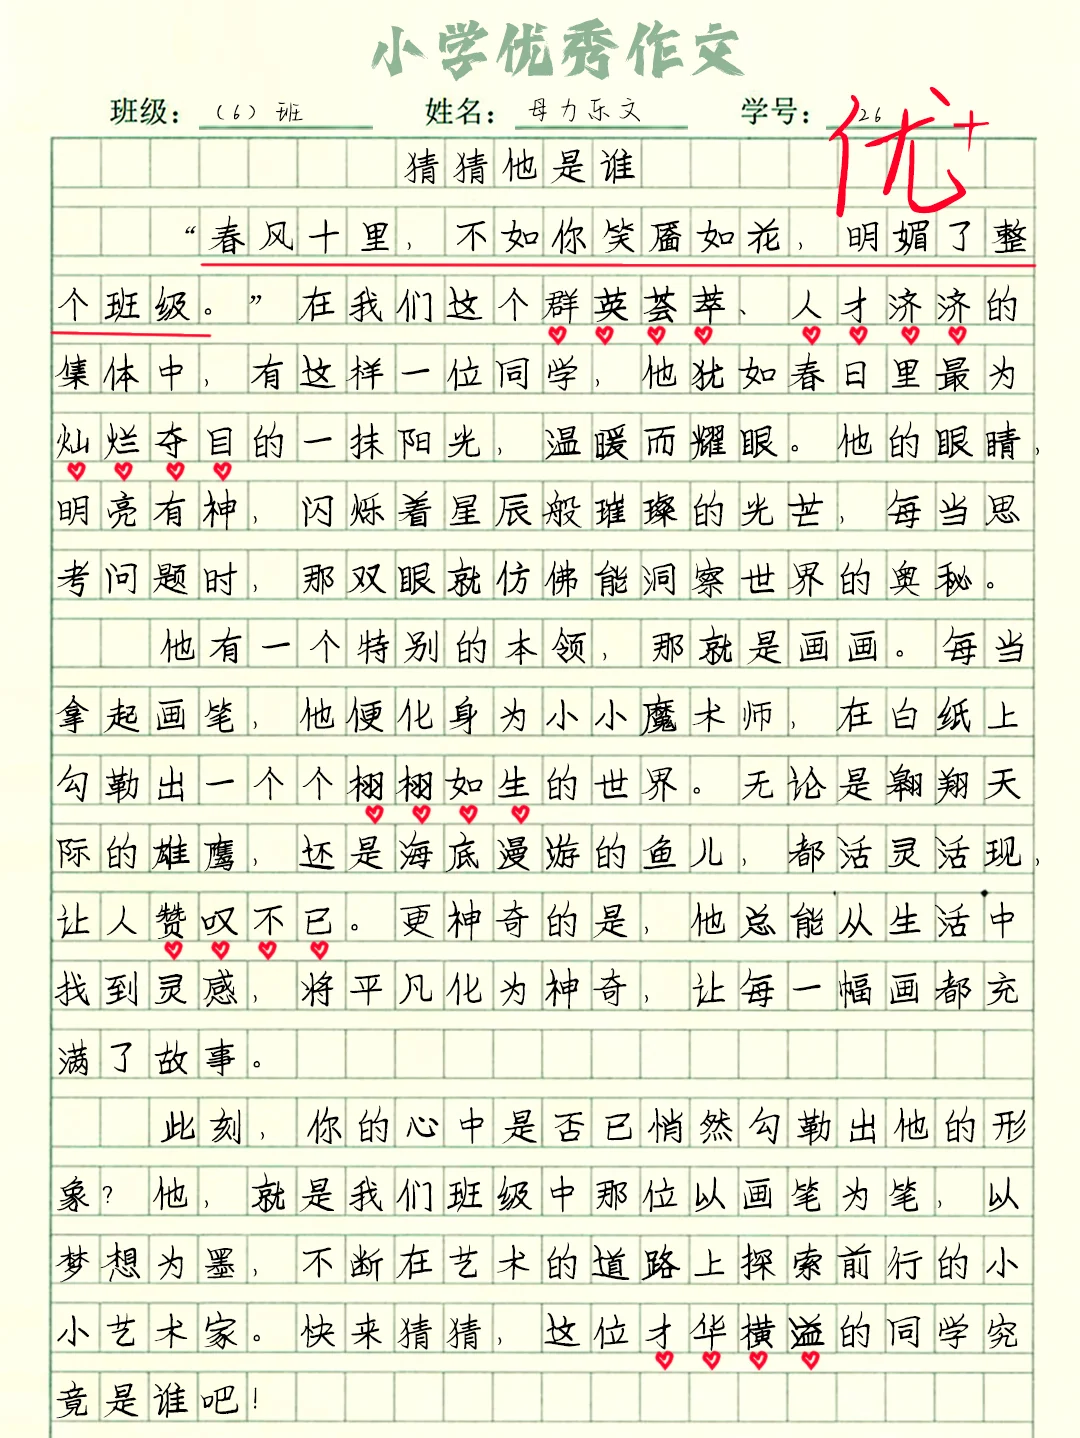 小学优秀作文
班级：（6）班 姓名：母力乐文 学号：26
优+
猜猜他是谁
“春风十里，不如你笑靥如花，明媚了整
个班级。”在我们这个群英荟萃、人才济济的
集体中，有这样一位同学，他犹如春日里最为
灿烂夺目的一抹阳光，温暖而耀眼。他的眼睛，
明亮有神，闪烁着星辰般璀璨的光芒，每当思
考问题时，那双眼就仿佛能洞察世界的奥秘。
他有一个特别的本领，那就是画画。每当
拿起画笔，他便化身为小小魔术师，在白纸上
勾勒出一个个栩栩如生的世界。无论是翱翔天
际的雄鹰，还是海底漫游的鱼儿，都活灵活现，
让人赞叹不已。更神奇的是，他总能从生活中
找到灵感，将平凡化为神奇，让每一幅画都充
满了故事。
此刻，你的心中是否已悄然勾勒出他的形
象？他，就是我们班级中那位以画笔为笔，以
梦想为墨，不断在艺术的道路上探索前行的小
小艺术家。快来猜猜，这位才华横溢的同学究
竟是谁吧！